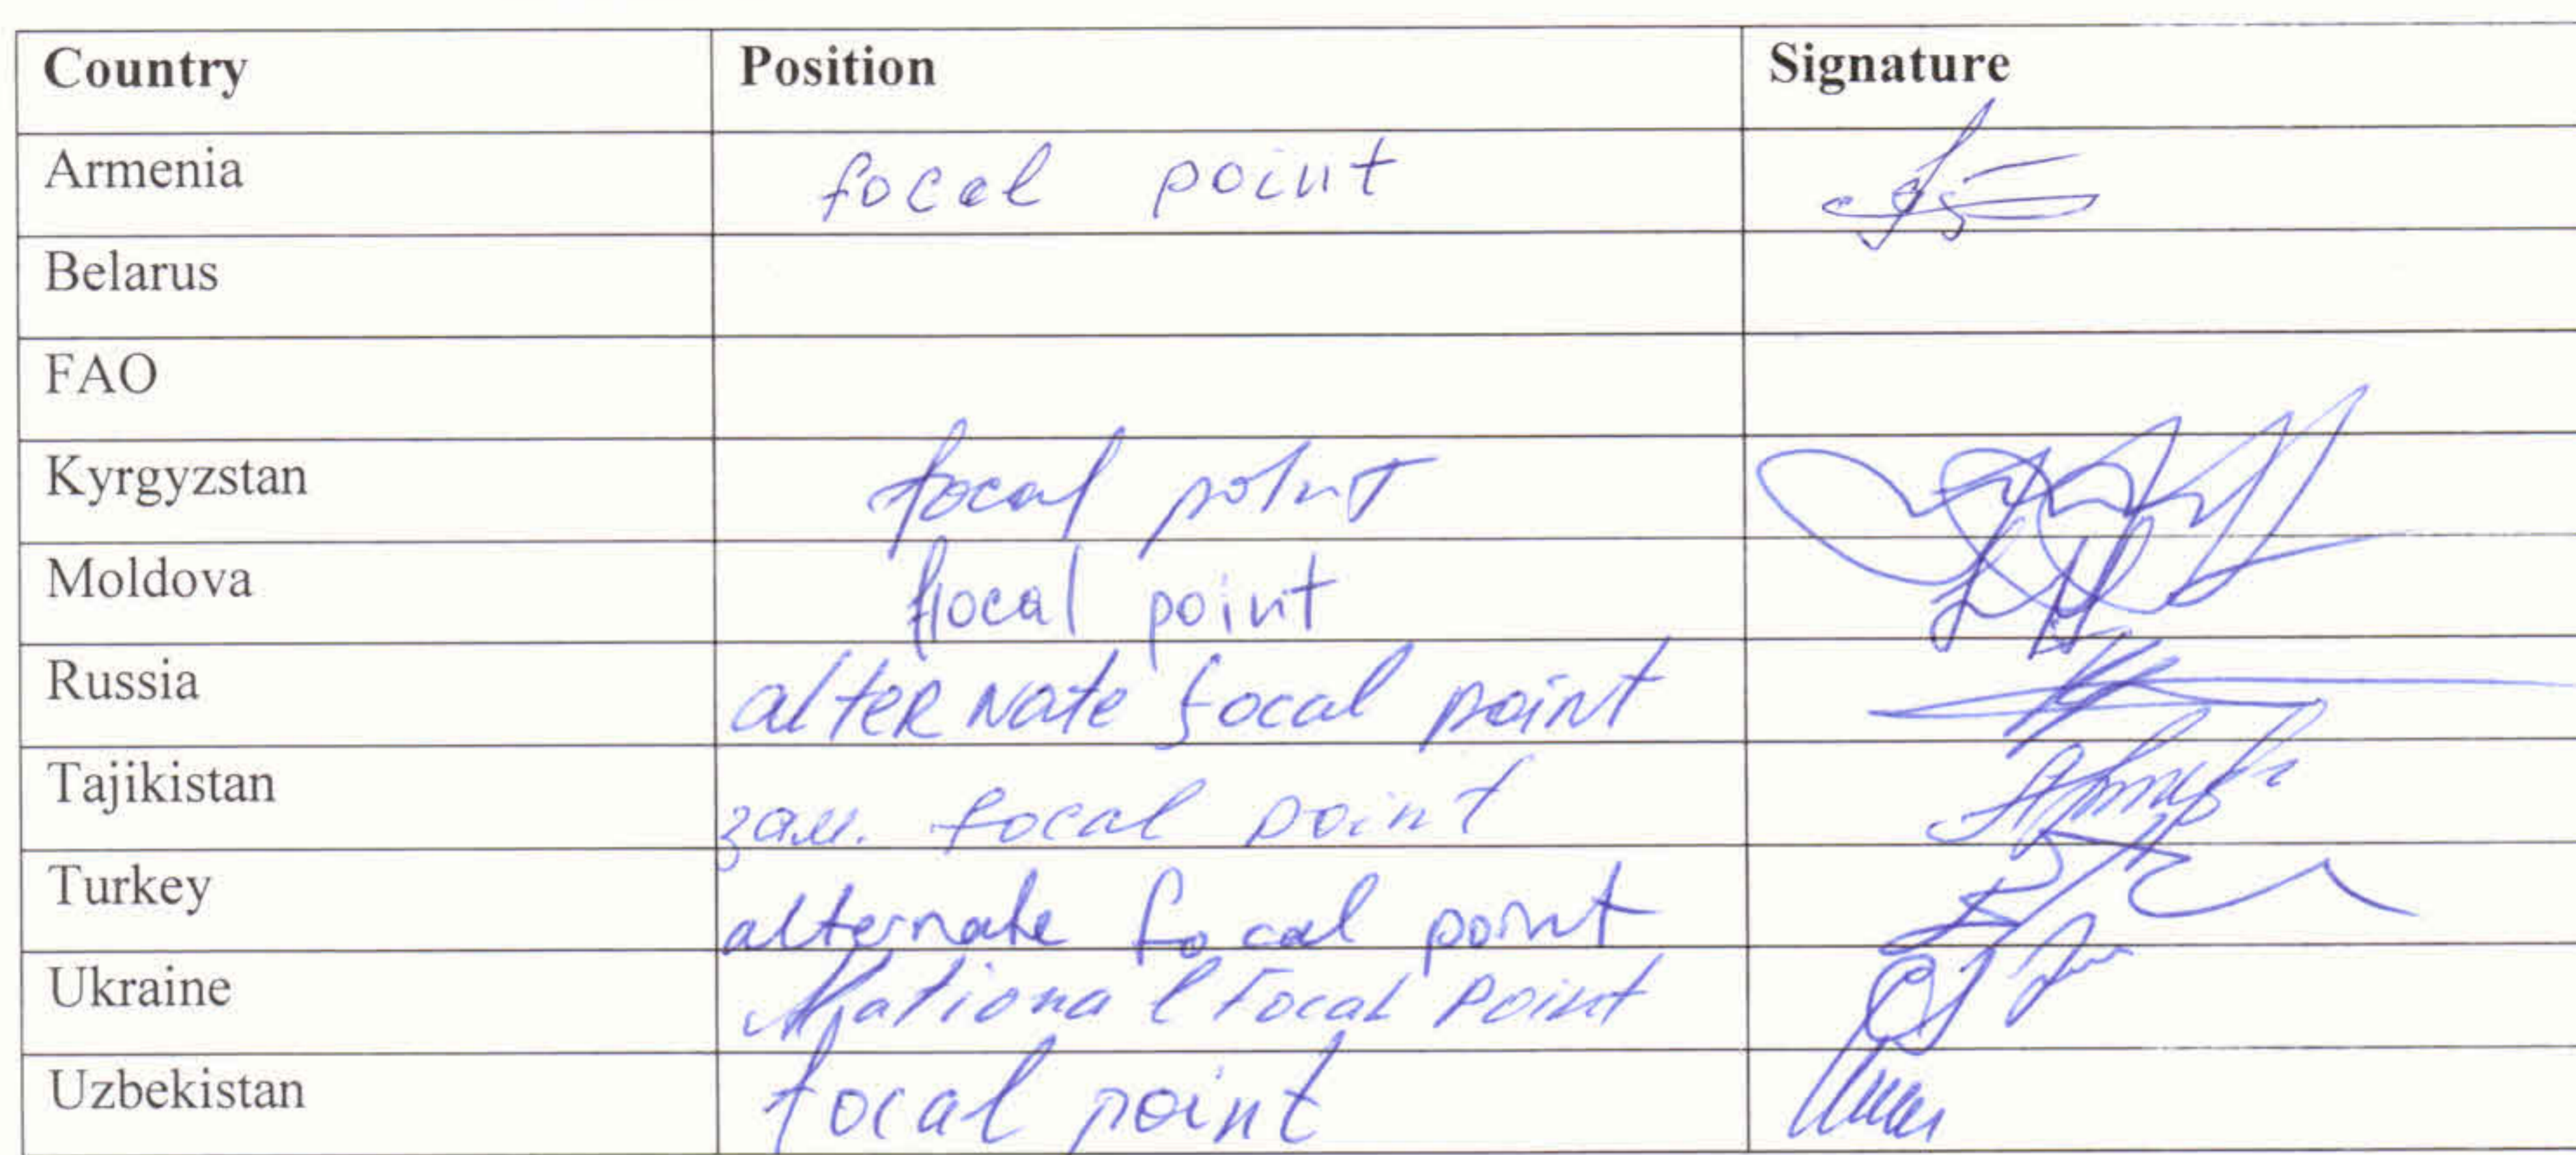 Country Position Signature
Armenia focal point
Belarus
FAO
Kyrgyzstan focal point
Moldova focal point
Russia alternate focal point
Tajikistan зам. focal point
Turkey alternate focal point
Ukraine National Focal Point
Uzbekistan focal point